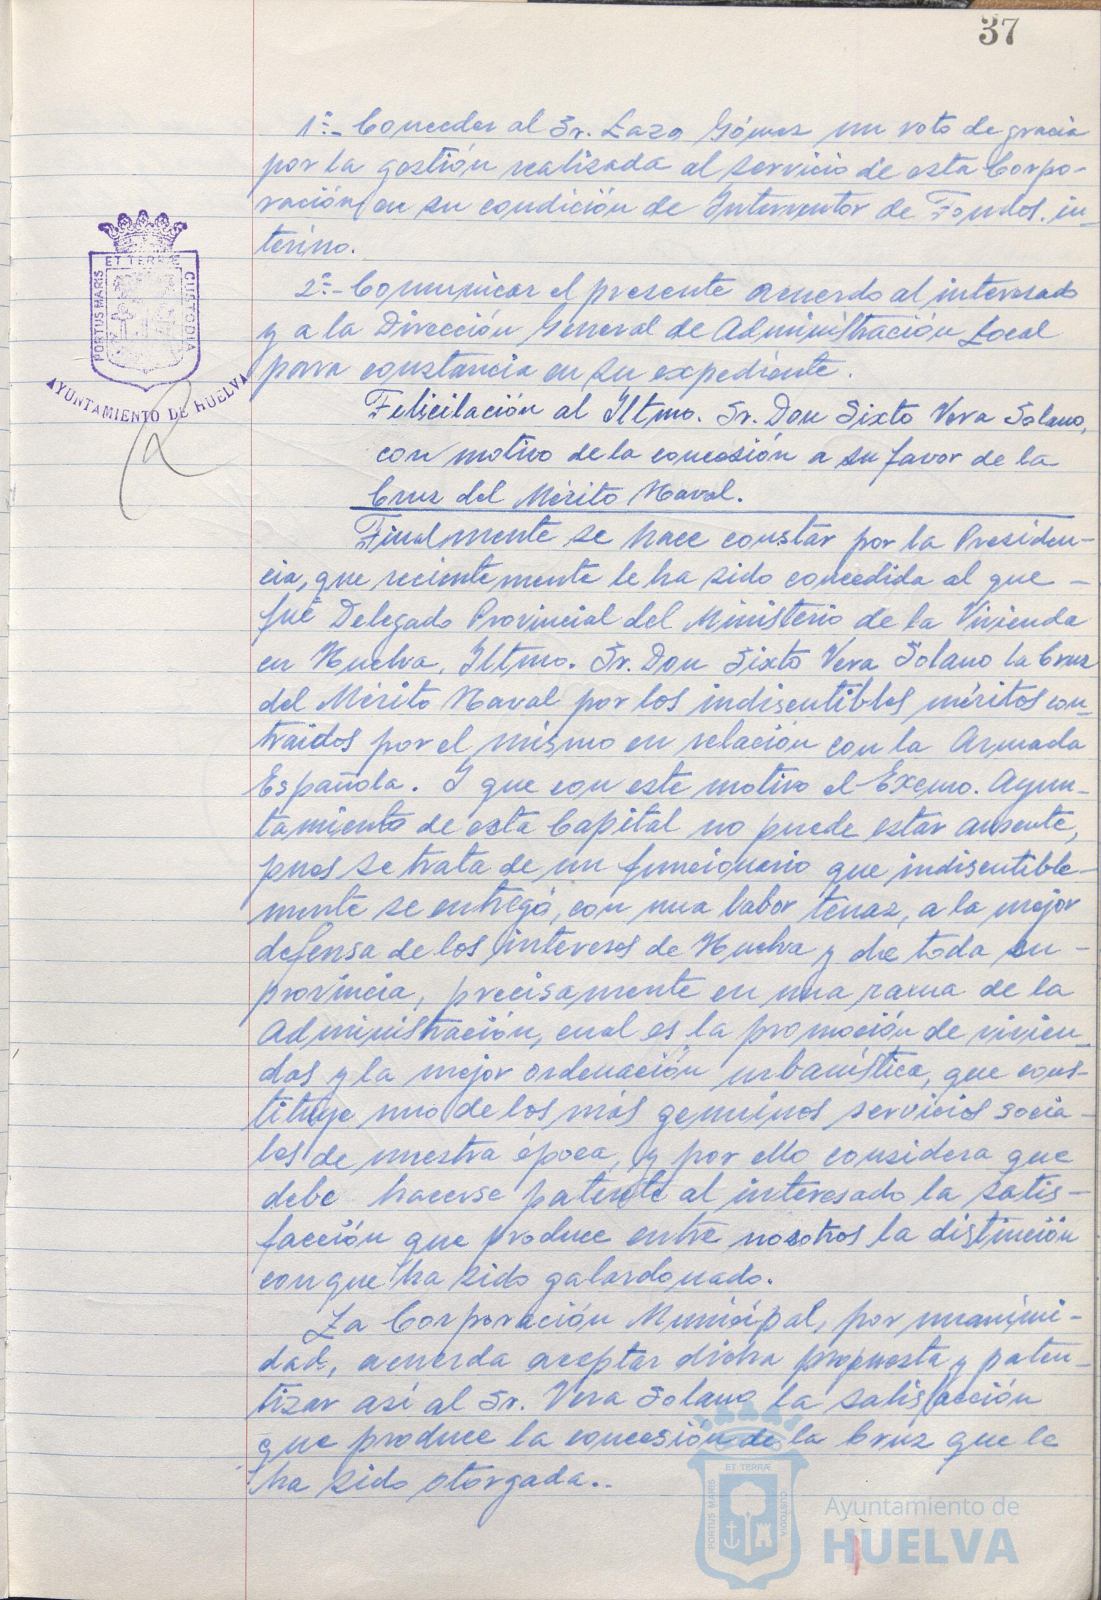 37
1º- Conceder al Sr. Lazo Gómez un voto de gracia
por la gestión realizada al servicio de esta Corpo-
ración en su condición de Interventor de Fondos in-
terino.
2º- Comunicar el presente acuerdo al interesado
y a la Dirección General de Administración Local
para constancia en su expediente.
ET TERRÆ
PORTUS MARIS
CUSTODIA
AYUNTAMIENTO DE HUELVA
Felicitación al Iltmo. Sr. Don Sixto Vera Solano,
con motivo de la concesión a su favor de la
Cruz del Mérito Naval.
Finalmente se hace constar por la Presiden-
cia, que recientemente le ha sido concedida al que -
fué Delegado Provincial del Ministerio de la Vivienda
en Huelva, Iltmo. Sr. Don Sixto Vera Solano la Cruz
del Mérito Naval por los indiscutibles méritos con-
traidos por el mismo en relación con la Armada
Española. Y que con este motivo el Excmo. Ayun-
tamiento de esta Capital no puede estar ausente,
pues se trata de un funcionario que indiscutible-
mente se entregó, con una labor tenaz, a la mejor
defensa de los intereses de Huelva y de toda su -
provincia, precisamente en una rama de la
Administración, cual es la promoción de vivien-
das y la mejor ordenación urbanística, que cons-
tituye uno de los más genuinos servicios socia-
les de nuestra época, y por ello considera que
debe hacerse patente al interesado la satis-
facción que produce entre nosotros la distinción
con que ha sido galardonado.
La Corporación Municipal, por unanimi-
dad, acuerda aceptar dicha propuesta y paten-
tizar así al Sr. Vera Solano la satisfacción
que produce la concesión de la Cruz que le
ha sido otorgada..
ET TERRÆ
PORTUS MARIS
CUSTODIA
Ayuntamiento de
HUELVA